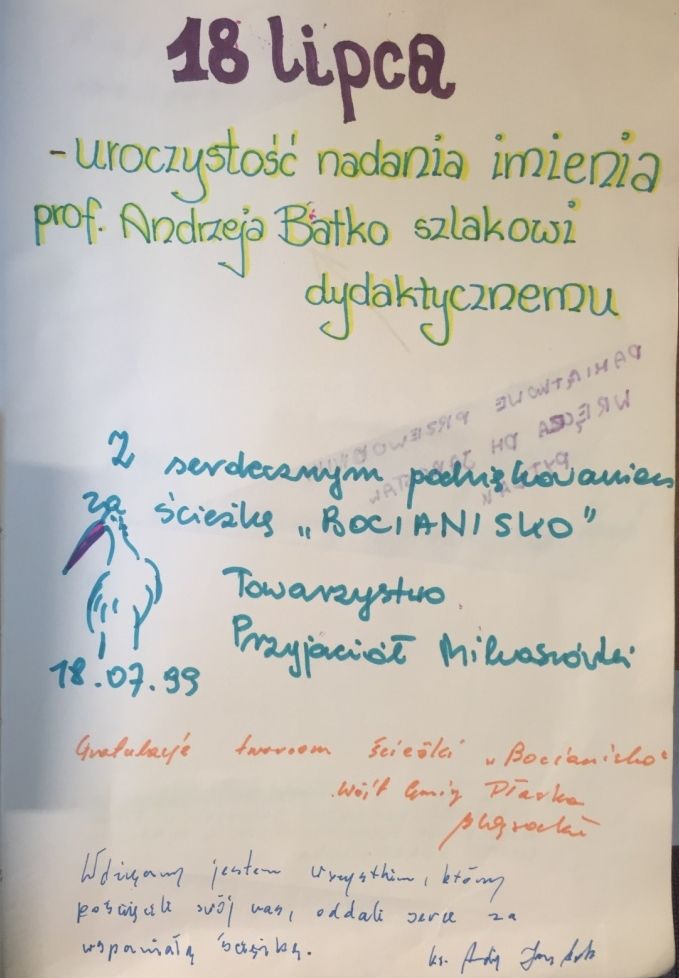 18 lipca
- uroczystość nadania imienia
prof. Andrzeja Batko szlakowi
dydaktycznemu
PAMIĄTKOWE
WRĘCZA DH
Z serdecznym podziękowaniem
za ścieżkę „BOCIANISKO”
Towarzystwo
Przyjaciół Mikaszówki
18.07.99
Gratulacje twórcom ścieżki „Bocianisko”
Wójt Gminy Płaska
Wdzięczny jestem wszystkim, którzy
poświęcili swój czas, oddali serce za
wspaniałą ścieżkę.
ks.